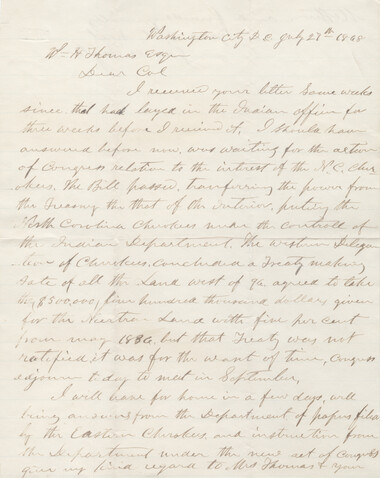 Washington City D.C July 27th 1868
Wm H Thomas Esqr
Dear Col
I receive your letter some weeks
since that had layed in the Indian office for
three weeks before I receivd it, I should have
answered before now, was waiting for the action
of Congress relation to the interest of the N.C. Cher
okees. The Bill passed, transferring the power from
the Treasury the that of the Interior, puting the
North Carolina Cherokees under the controll of
the Indian Department. The western Delega
tion of Cherokees concluded a Treaty making
sale of all the Land west of 96 agreed to take
four hundred thousand dollars given
for the Neutral Land with five per cent
from may 1836, but that Treaty was not
ratified, it was for the want of time, Congress
adjourn to day to meet in September,
I will leave for home in a few days, will
bring answers from the Department of papers filed
by the Eastern Cherokees, and instruction from
the Department under the new act of Congress
give my kind regard to Mrs Thomas & your